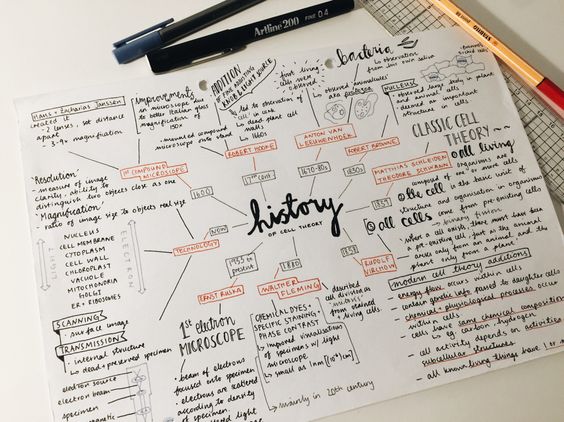 Artline 200
FINE 0.4
STABILO
Hans + Zacharias Janssen
created it
- 2 lenses, set distance
apart
- 3-9x magnification
Improvements
in microscope due
to better Italian lens
magnification of
ADDITION
OF FINE ADJUSTING
KNOB & LIGHT SOURCE
- led to observation of
'cell' in cork
↳ dead plant cell
walls
↳ 1660s
mounted compound
microscope onto stand
first living
cells were
observed
bacteria
↳ observation
from his own saliva
- observed 'animalcules'
aka protozoa
NUCLEUS
- observed largely in plant
and animal cells
- deemed as important
structure in cells
CLASSIC CELL
THEORY ~
① all living
organisms are
composed of one or more cells
② the cell is the basic unit of
structure and organisation in organisms
③ all cells come from pre-existing cells
↳ binary fission
"Where a cell exists, there must have been
a pre-existing cell, just as the animal
arises only from an animal and the
plant only from a plant"
1ST COMPOUND
MICROSCOPE
ROBERT HOOKE
ANTON VAN
LEEUWENHOEK
ROBERT BROWNE
MATTHIAS SCHLEIDEN
THEODORE SCHWANN
1600
17TH cent
1670-80s
1830s
history
OF CELL THEORY
• Resolution:
- measure of image
clarity - ability to
distinguish two objects close as one
• Magnification:
- ratio of image size to objects real size
LIGHT
NUCLEUS
CELL MEMBRANE
CYTOPLASM
CELL WALL
CHLOROPLAST
VACUOLE
MITOCHONDRIA
GOLGI
ER + RIBOSOMES
ELECTRON
TECHNOLOGY
NOW
1933 to
present
1880
ERNST RUSKA
WALTHER
FLEMING
RUDOLF
VIRCHOW
SCANNING
• surface image
TRANSMISSION
• internal structure
↳ dead + preserved specimen
electron source
electron beam
specimen
magnetic
1st electron
MICROSCOPE
• beam of electrons
focused onto specimen
• electrons are scattered
according to density
of specimen.
CHEMICAL DYES +
SPECIFIC STAINING +
PHASE CONTRAST
↳ improved visualisation
of specimens w/ light
microscope
↳ small as 1nm
↳ mainly in 20th century
described
cell division as
'mitosis' from
stained living
cells
modern cell theory additions
- energy flow occurs within cells
- contain genetic info passed to daughter cells
- chemical + physiological processes occur
within cells
- cells have same chemical composition
↳ eg carbon, hydrogen
- all cell depends on activities
subcellular structures.
- all known living things have 1 or